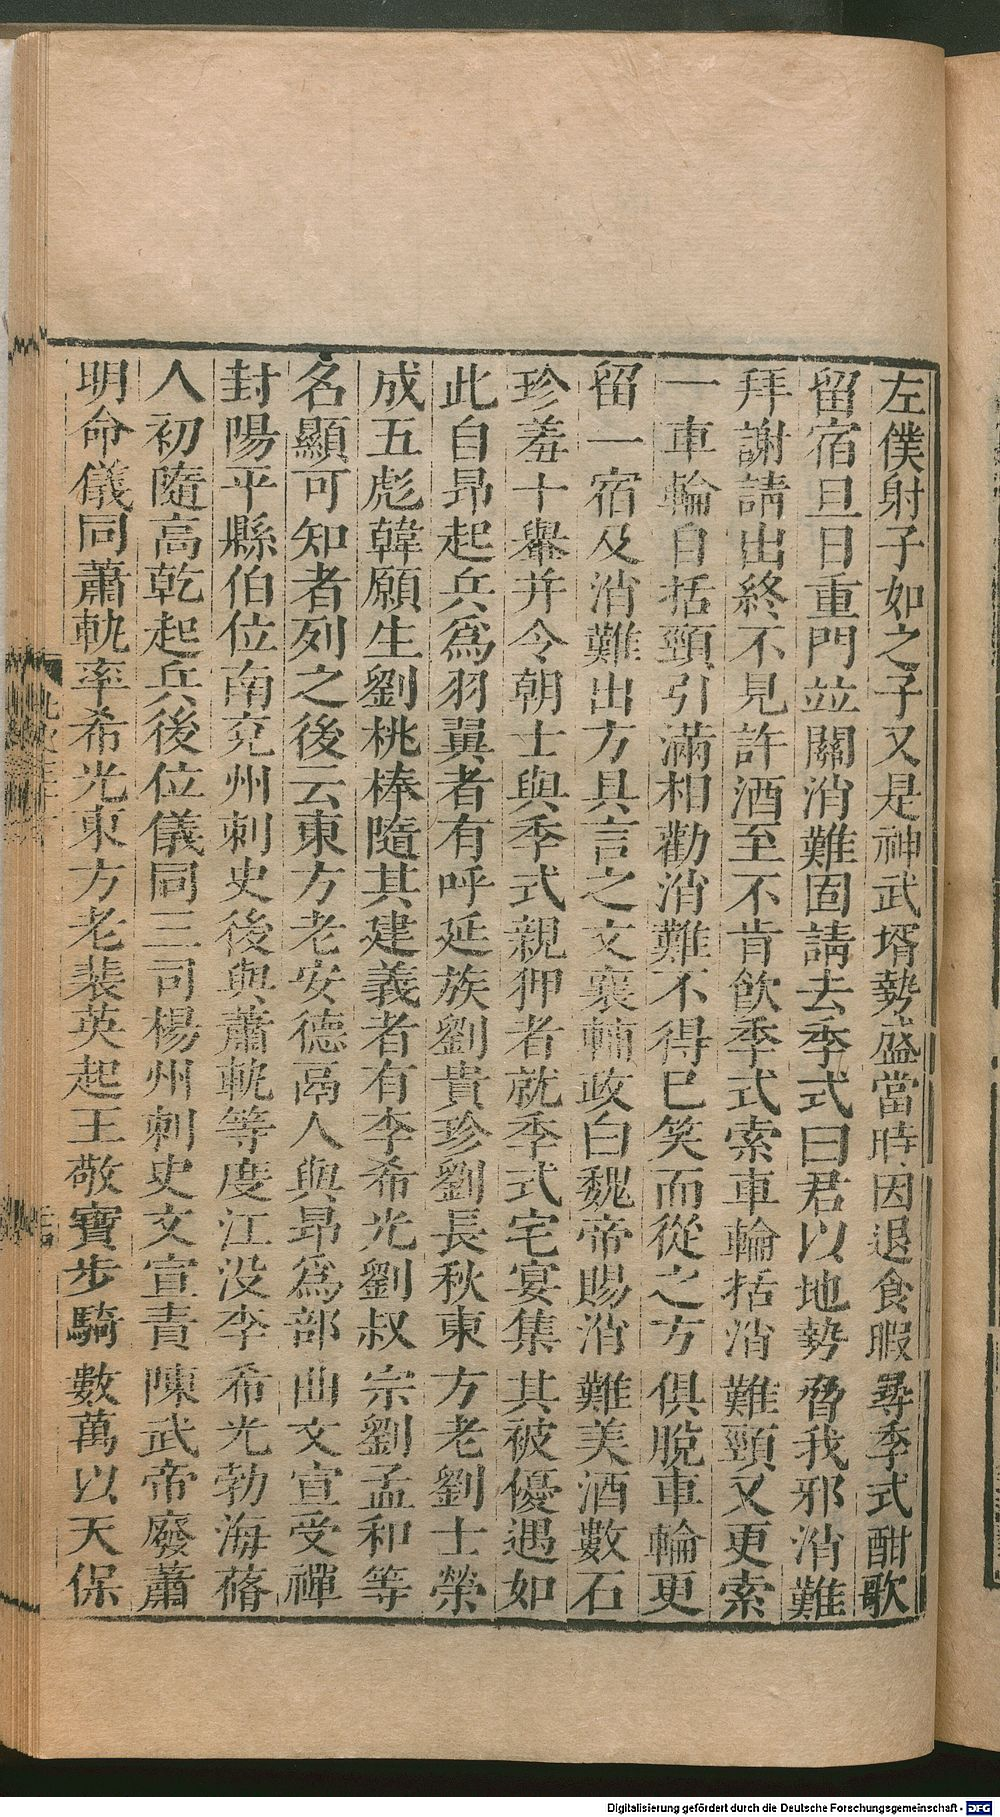 左僕射子如之子又是神武壻勢盛當時因退食暇尋季式酣歌
留宿旦日重門並關消難固請去季式曰君以地勢脅我邪消難
拜謝請出終不見許酒至不肯飲季式索車輪括消難頸又更索
一車輪自括頸引滿相勸消難不得已笑而從之方俱脫車輪更
留一宿及消難出方具言之文襄輔政白魏帝賜消難美酒數石
珍羞十轝并令朝士與季式親狎者就季式宅宴集其被優遇如
此自昂起兵爲羽翼者有呼延族劉貴珍劉長秋東方老劉士榮
成五彪韓願生劉桃棒隨其建義者有李希光劉叔宗劉孟和等
名顯可知者列之後云東方老安德鬲人與昂爲部曲文宣受禪
封陽平縣伯位南兗州刺史後與蕭軌等度江没李希光勃海蓨
人初隨高乾起兵後位儀同三司楊州刺史文宣責陳武帝廢蕭
明命儀同蕭軌率希光東方老裴英起王敬寶步騎數萬以天保
Digitalisierung gefördert durch die Deutsche Forschungsgemeinschaft - DFG